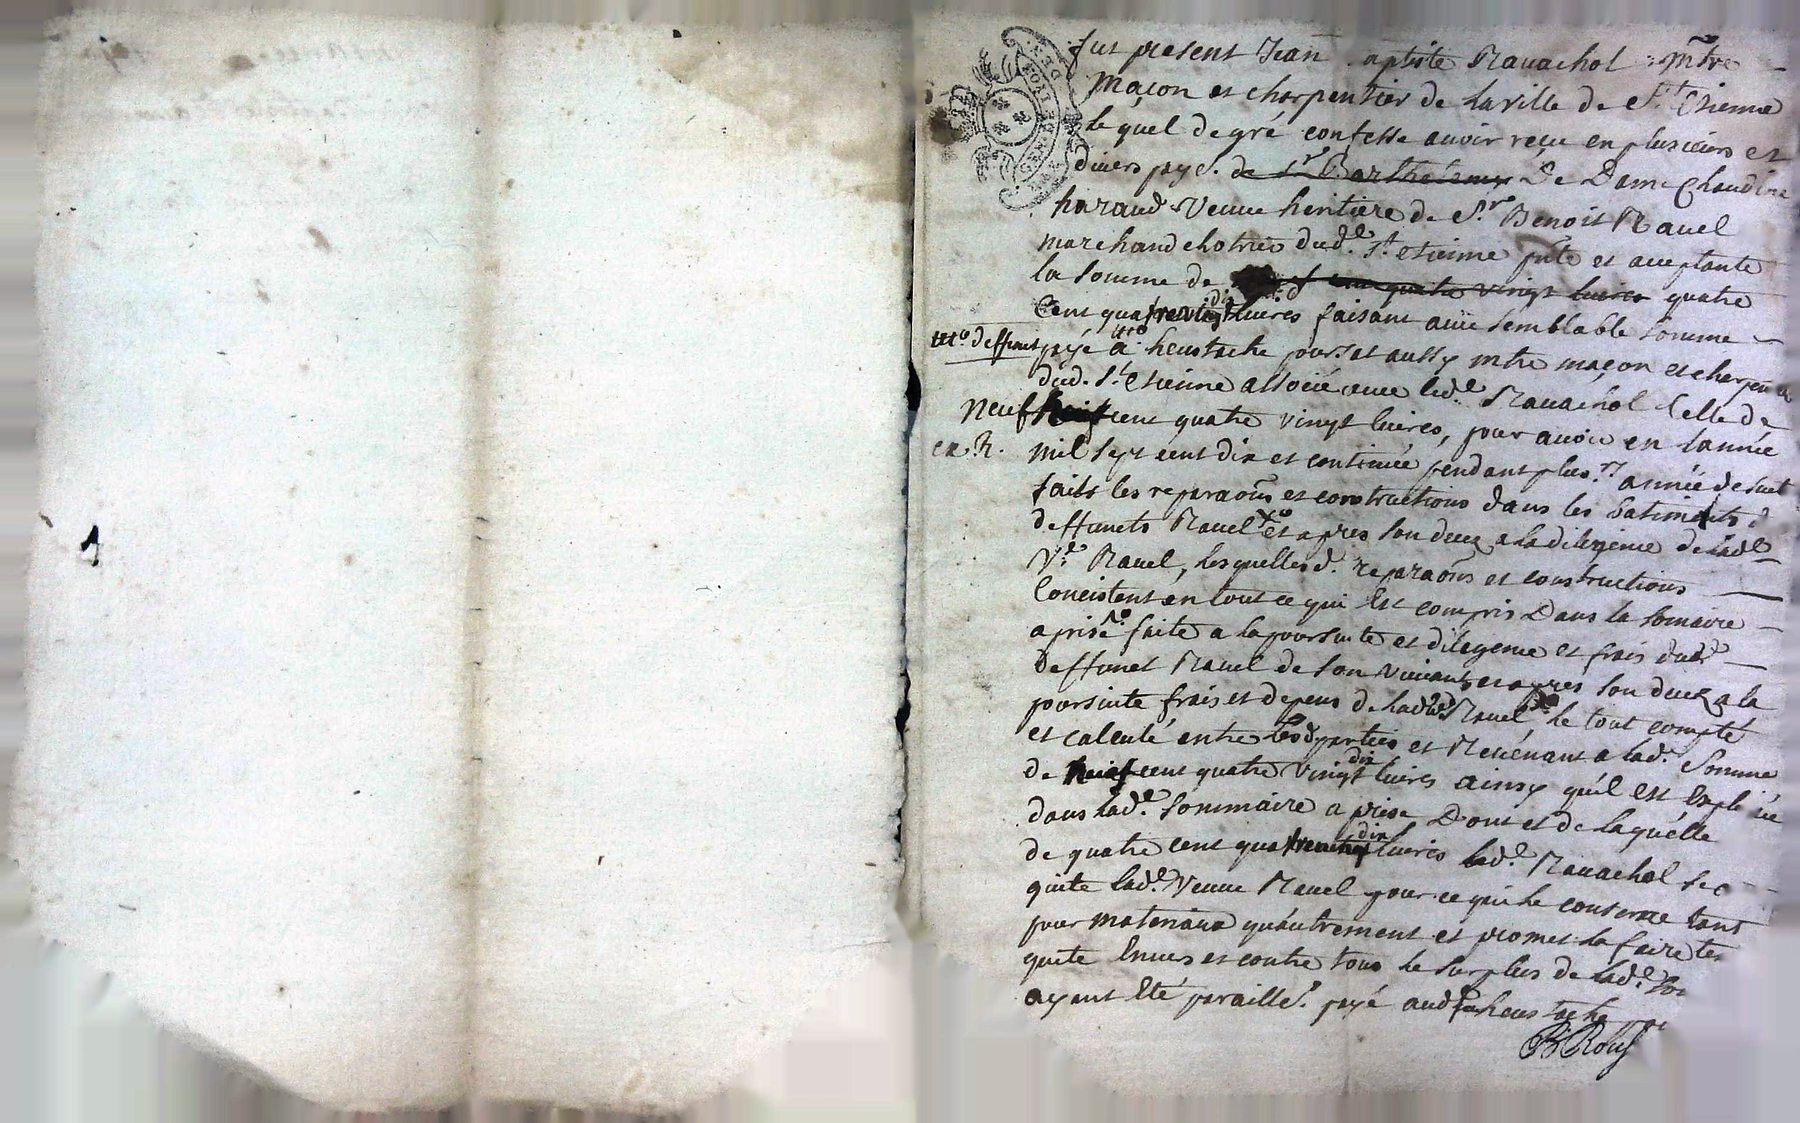 fut present Jean aptiste Ravachol mtre
Maçon et charpentier de la ville de St. Etienne
le quel de gré confesse avoir reçu en plusieurs et
divers paye. de Sr Barthelemy De Dame Claudine
haraud veuve heritiere de Sr. Benoit Ravel
marchand dud. St. etienne pnte et acceptante
la somme de quatre vingt livres quatre
Cent quatrevingt dix livres faisant avec semblable somme
deffunt payé a heustache aussy mtre maçon et charpen
dud. St. Etienne associé avec led. Ravachol Celle de
Neuf cent quatre vingt livres, pour avoir en lannée
ex. R. mil sept cent dix et continué pendant plus.rs année de suit
faits les reparaõns et constructions dans les batiments d
deffuncts Ravel et apres son decez a la diligence de lade
Ve. Ravel, lesquelles d. reparaõns et constructions
Concistent en tout ce qui Est compris Dans la somaire
aprise faite a la poursuitte et diligence et frais dud
deffunct Ravel de son vivant et apres son decez a la
poursuite frais et depens de lad ve Ravel le tout compté
et calculé entre lesd parties et Revenant a lad. Somme
de Neuf cent quatre vingt dix livres ainsy quil est Expl
dans lade. sommaire aprise Dont et de laquelle
de quatre cent quatrevingt dix livres led. Ravachol se
quitte lade. Veuve Ravel pour ce qui le conserne tant
pour materiaux quautrement et promet la faire te
quitte Envers et contre tous le surplus de lade. So
ayant Eté payé aud heustache